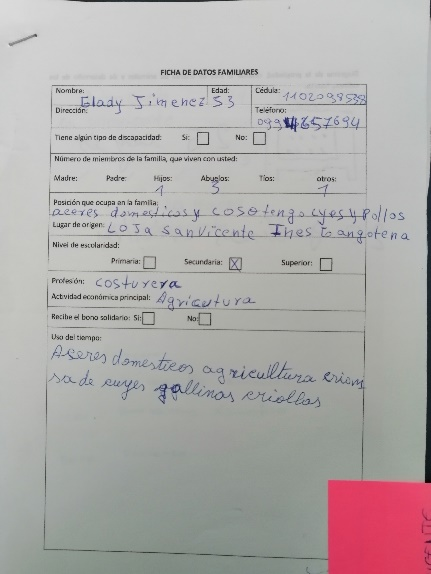 FICHA DE DATOS FAMILIARES
Nombre: Glady Jimenez Edad: 53 Cédula: 1102099598
Dirección: Teléfono: 0994657694
Tiene algún tipo de discapacidad: Si: No:
Número de miembros de la familia, que viven con usted:
Madre: Padre: Hijos: Abuelos Tíos: otros:
1 3 1
Posición que ocupa en la familia:
aceres domesticos y coso tengo cyes y Pollos
Lugar de origen: Loja San Vicente Ines
Nivel de escolaridad:
Primaria: Secundaria: X Superior:
Profesión: costurera
Actividad económica principal: Agricutura
Recibe el bono solidario: Si: No:
Uso del tiempo:
Aseres domesticos agricultura crian
sa de cuyes gallinas criollas